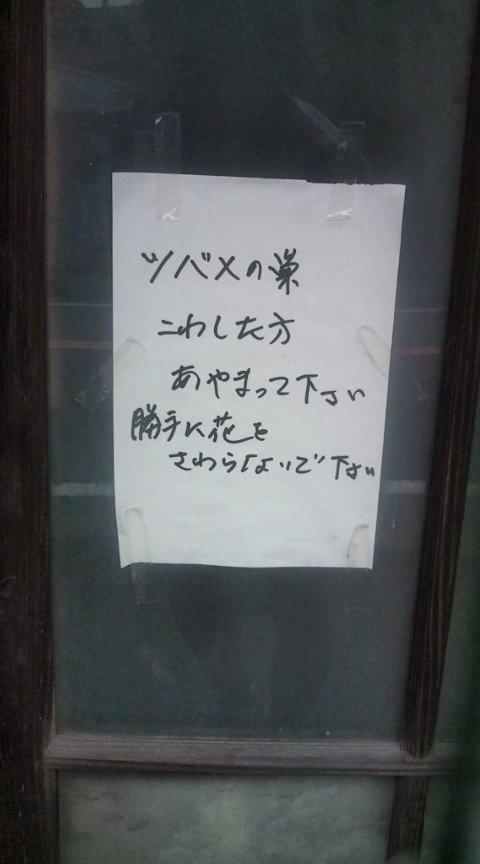 ツバメの巣
こわした方
あやまって下さい
勝手に花を
さわらないで下さい